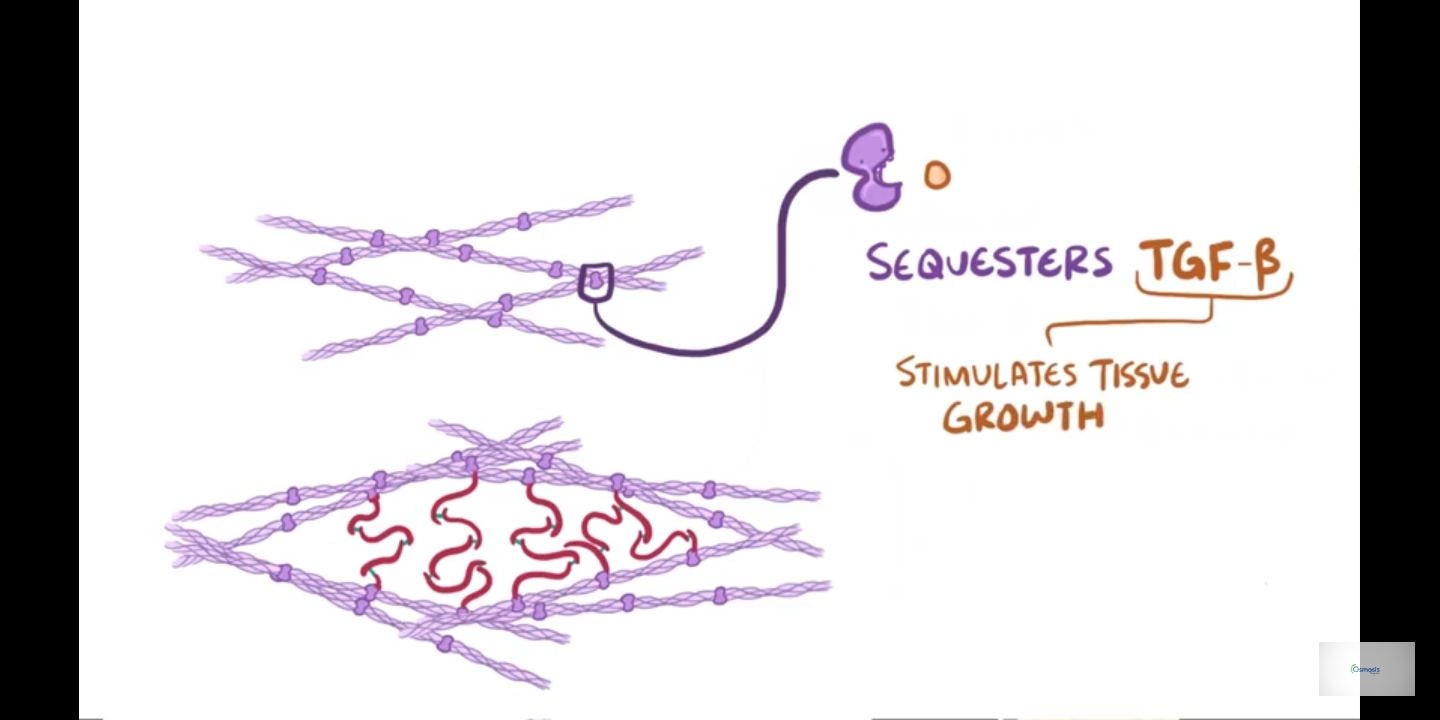 SEQUESTERS TGF-β
STIMULATES TISSUE
GROWTH
Osmosis